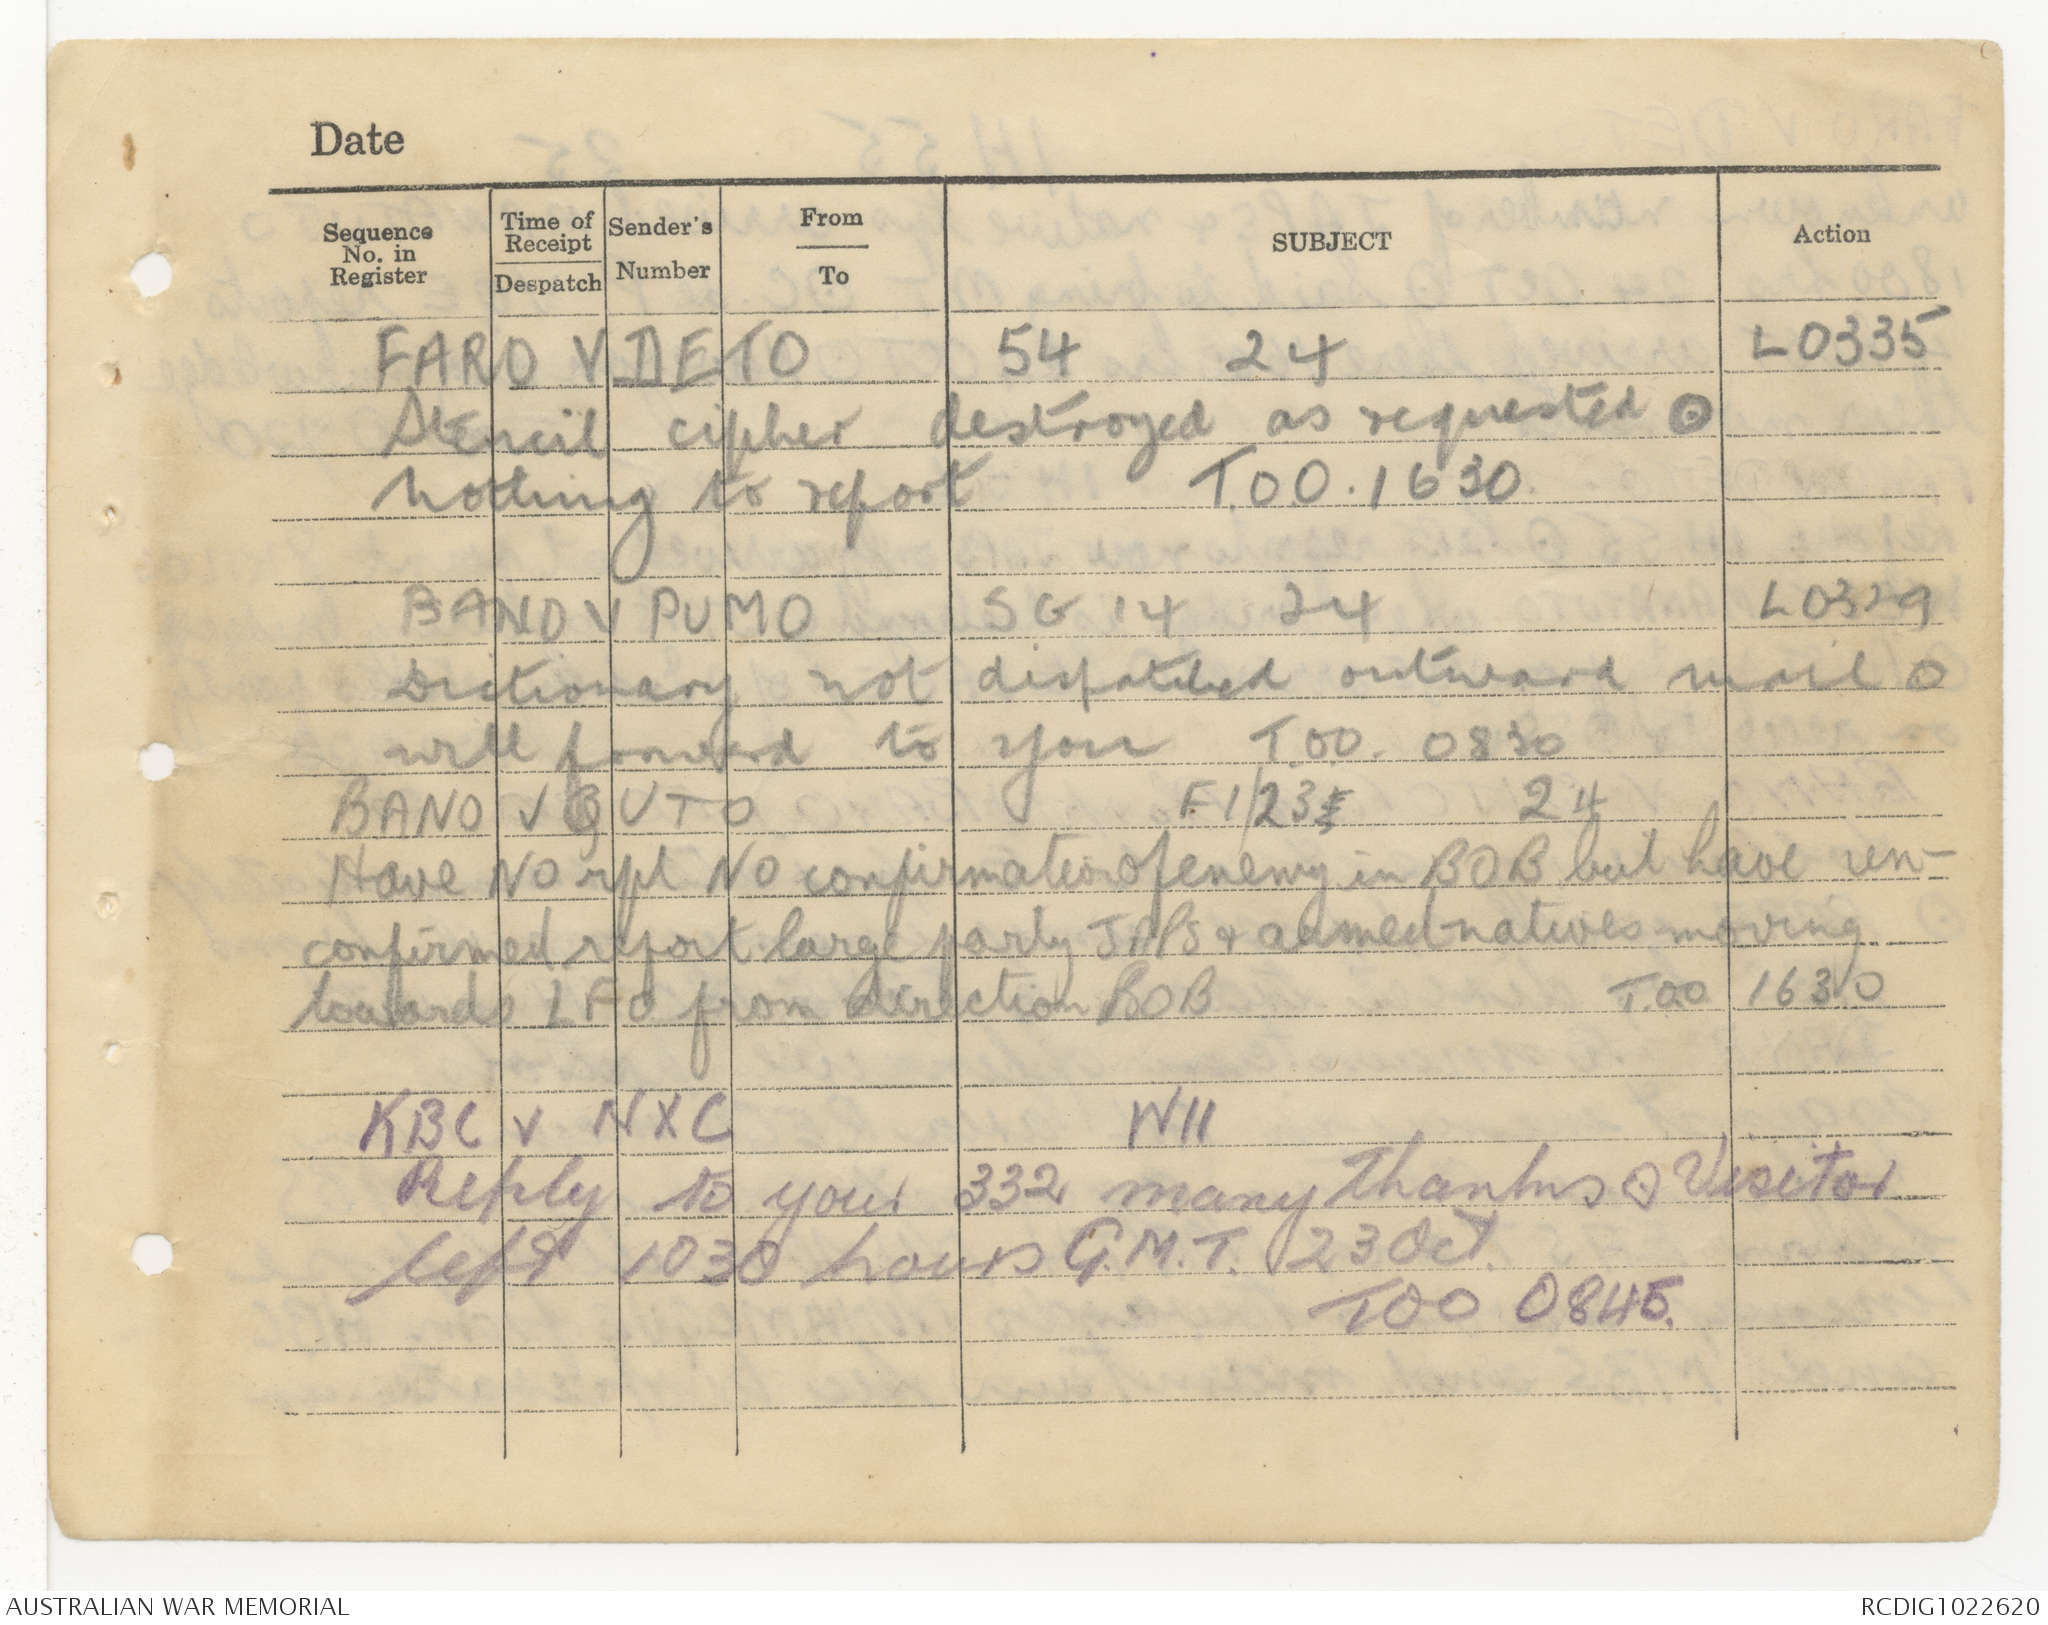 Date
Sequence No. in Register
Time of Receipt
Despatch
Sender's Number
From
To
SUBJECT
Action
FARO V DETO 54 24 L0335
Stencil cipher destroyed as requested ⊙
nothing to report T.O.O. 1630
BANO V PUMO SG 14 24 L0329
Dictionary not dispatched outward mail O
will forward to you T.OO. 0830
BANO V GUTO F1/23 24
Have NO rpt NO confirmation of enemy in BOB but have un-
confirmed report large party JAPS & armed natives moving
towards LFO from direction BOB T.OO 1630
KBC v NXC W11
Reply to your 332 many thanks ⊙ Visitor
left 1030 hours G.M.T. 23 Oct.
TOO 0845.
AUSTRALIAN WAR MEMORIAL
RCDIG1022620